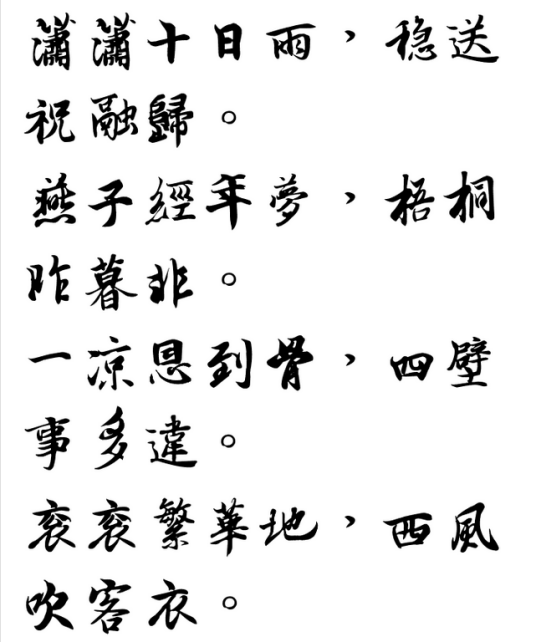 瀟瀟十日雨，穏送
祝融歸。
燕子經年夢，梧桐
昨暮非。
一凉恩到骨，四壁
事多違。
衮衮繁華地，西風
吹客衣。